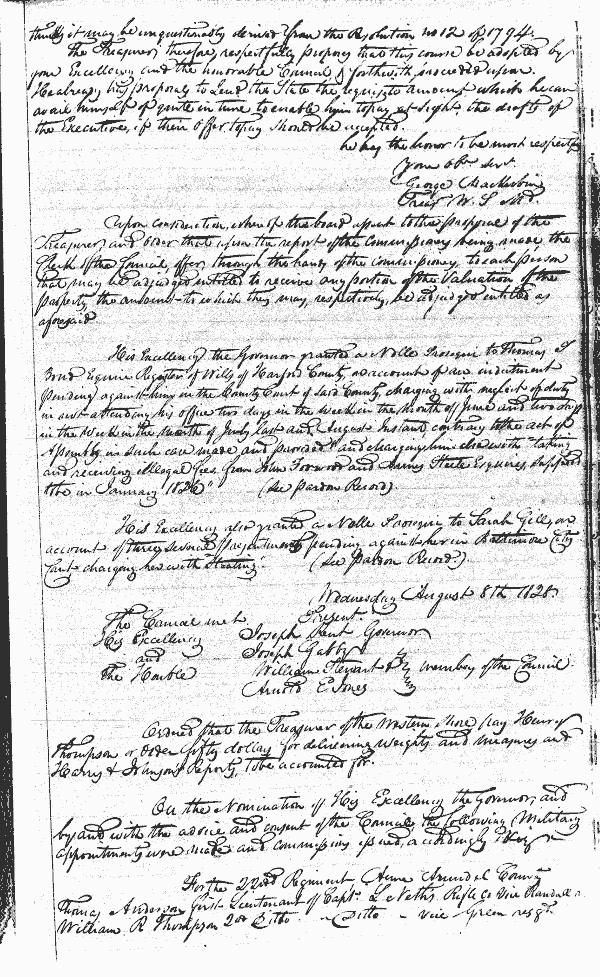 thinks it may be unquestionably derived from the Resolution no 12 of 1794.
The Treasurer, therefore, respectfully proposes that this course be adopted by
your Excellency and the honorable Council & forthwith proceeded upon.
He also proposes to lend the State the requisite amount which he can
avail himself of quite in time to enable him to pay at sight, the drafts of
the Executive, if their offer to pay should be accepted.
he has the honor to be most respectfy
your obt. servt.
George Mackubin
Treasr W. S. Md.
Upon consideration, whereof the board assent to the proposal of the
Treasurer, and order that upon the report of the commissioners being made, the
Clerk of the Council, offer, through the hands of the commissioners, to each person
that may be adjudged entitled to receive any portion of the valuation of the
property the amount to which they may, respectively, be adjudged entitled as
aforesaid
His Excellency the Governor grants a Nolle Prosequi to Thomas S
Bond Esquire Register of Wills of Harford County, on account of an indictment
pending against him in the County Court of said County, charging with neglect of duty
in not attending his office two days in the week in the month of June and two days
in the week in the month of July last and August Instant contrary to the act of
Assembly in such case made and provided and charging him also with taking
and receiving illegal fees from John Forwood and James Steele Esquires,
in January 1826 (See Pardon Record).
His Excellency also grants a Nolle Prosequi to Sarah Gilly on
account of three several presentments pending against her in Baltimore City
Court charging her with Stealing. (See Pardon Record.)
Wednesday August 8th 1828
The Council met Present.
His Excellency Joseph Kent Governor
and Joseph Gabby
The Honble William Stewart & members of the Council
Arnold E Jones
Ordered that the Treasurer of the Western Shore pay Henry
Thompson or order fifty dollars for delivering weights and measures and
Harris & Johnson's Reports, to be accounted for.
On the Nomination of His Excellency the Governor, and
by and with the advice and consent of the Council, the following Military
appointments were made and commissions issued, accordingly Viz
For the 22nd Regiment Anne Arundel County
Thomas Anderson first Lieutenant of Capt. L Neths Rifle Co vice Randall
William R Thompson 2nd Ditto - Ditto - vice Green resgd.